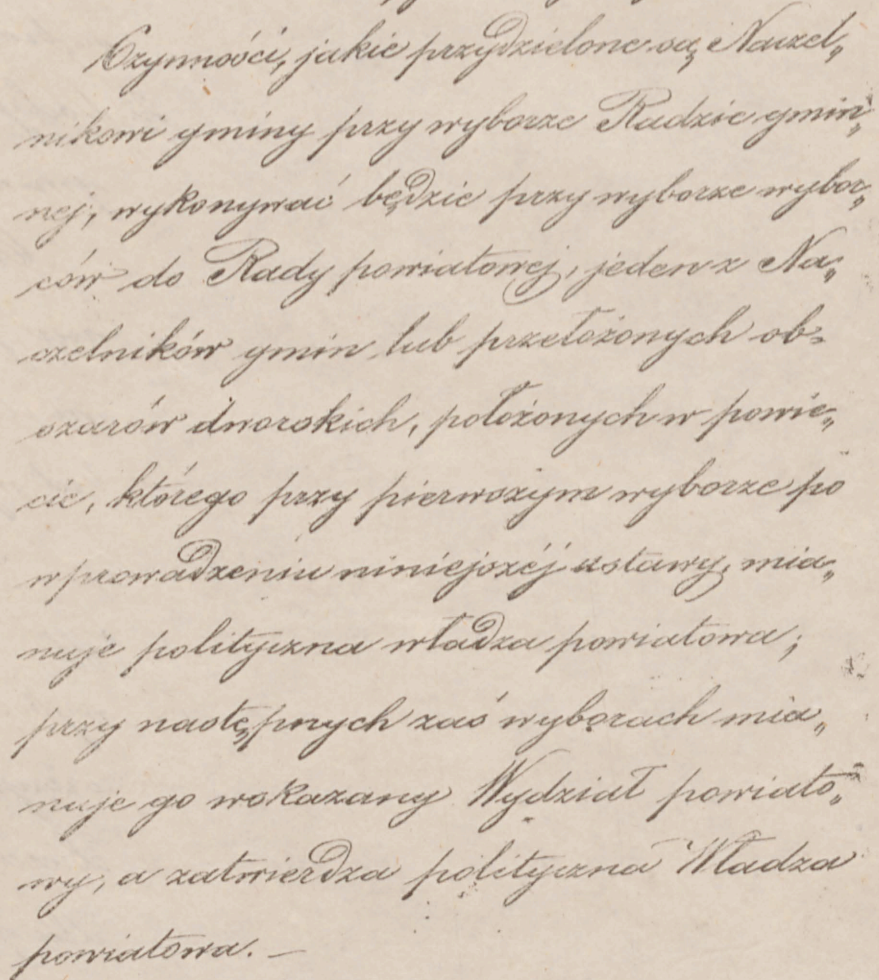 Czynności, jakie przydzielone są Naczel„
nikowi gminy przy wyborze Radzie gmin„
nej, wykonywać będzie przy wyborze wybor„
ców do Rady powiatowej, jeden z Na„
czelników gmin lub przełożonych ob„
szarów dworskich, położonych w powie„
cie, którego przy pierwszym wyborze po
wprowadzeniu niniejszéj ustawy, mia„
nuje polityczna władza powiatowa;
przy następnych zaś wyborach mia„
nuje go wskazany Wydział powiato„
wy, a zatwierdza polityczna Władza
powiatowa. —